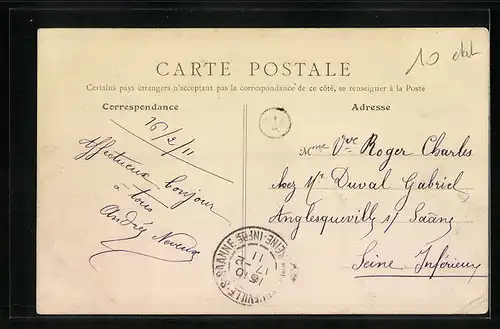 10
CARTE POSTALE
Certains pays étrangers n'acceptant pas la correspondance de ce côté, se renseigner à la Poste
Correspondance
Adresse
16/2/11
Affectueux bonjour
à tous
André
1
Mme Vve Roger Charles
chez Mr Duval Gabriel
Anglesqueville s/ Saâne
Seine Inférieure
SEINE-INFRE
17
11